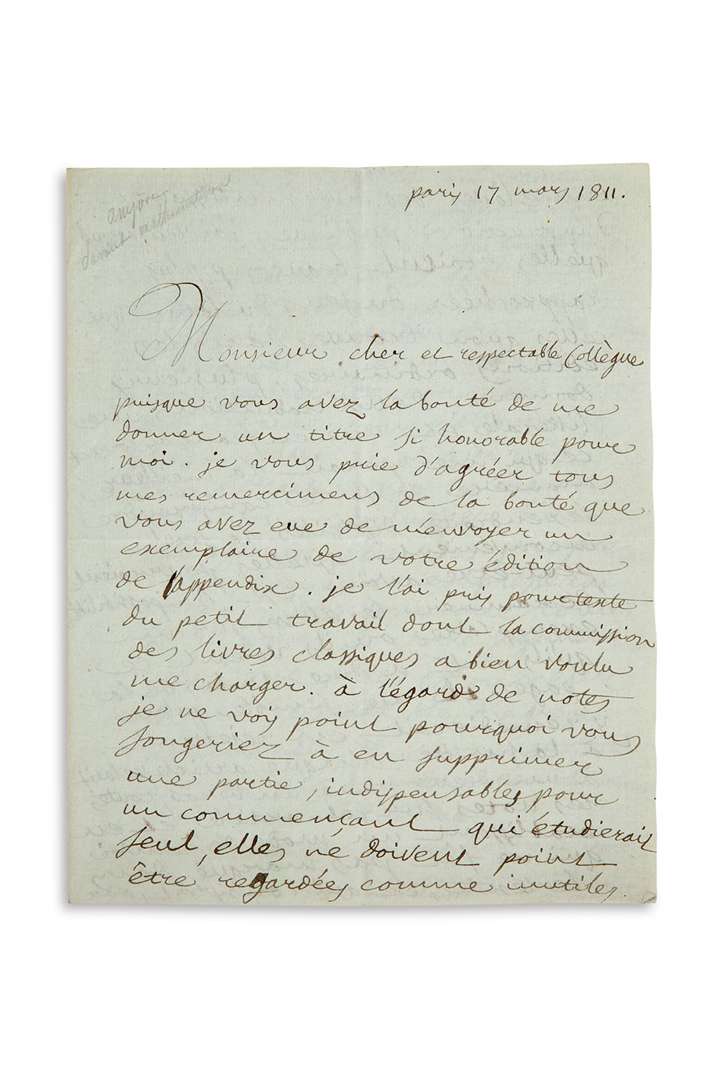 paris 17 mars 1811.
Monsieur cher et respectable Collègue
puisque vous avez la bonté de me
donner un titre si honorable pour
moi. je vous prie d'agréer tous
mes remercimens de la bonté que
vous avez eue de m'envoyer un
exemplaire de votre édition
de l'appendix. je l'ai pris pour texte
du petit travail dont la commission
des livres classiques a bien voulu
me charger. à l'égard de notes
je ne vois point pourquoi vous
songeriez à en supprimer
une partie, indispensables pour
un commençant qui étudierait
seul, elles ne doivent point
être regardées comme inutiles.